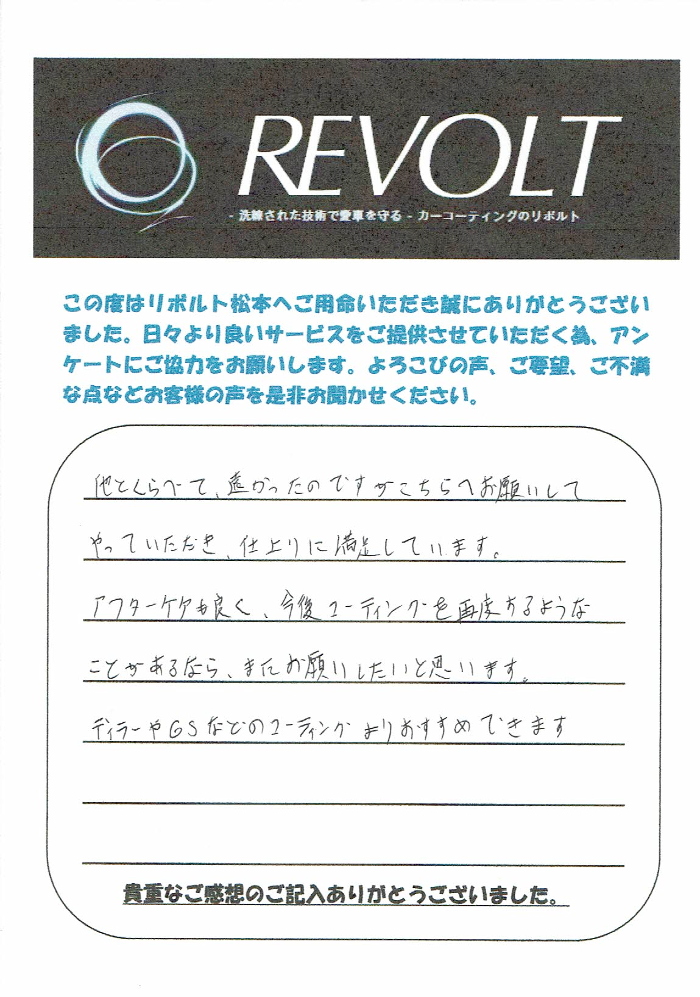 REVOLT
- 洗練された技術で愛車を守る - カーコーティングのリボルト
この度はリボルト松本へご用命いただき誠にありがとうござい
ました。日々より良いサービスをご提供させていただく為、アン
ケートにご協力をお願いします。よろこびの声、ご要望、ご不満
な点などお客様の声を是非お聞かせください。
他とくらべて、遠かったのですがこちらへお願いして
やっていただき、仕上りに満足しています。
アフターケアも良く、今後コーティングを再度するような
ことがあるなら、またお願いしたいと思います。
ディラーやGSなどのコーティングよりおすすめできます
貴重なご感想のご記入ありがとうございました。